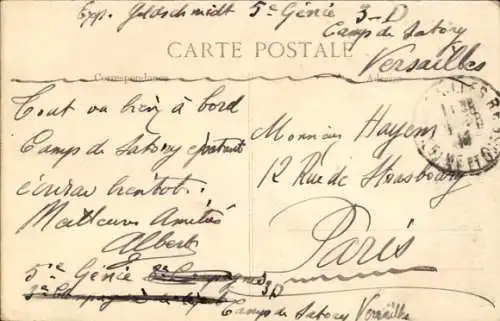 Exp. Goldschmidt 5e Génie 3-D
Camp de Satory
Versailles
CARTE POSTALE
Correspondance
Tout va bien à bord
Camp de Satory
écrirai bientôt.
Meilleures Amitiés
Albert
5e Génie
3D
Camp de Satory Versailles
Monsieur Hayem
12 Rue de Strasbourg
Paris